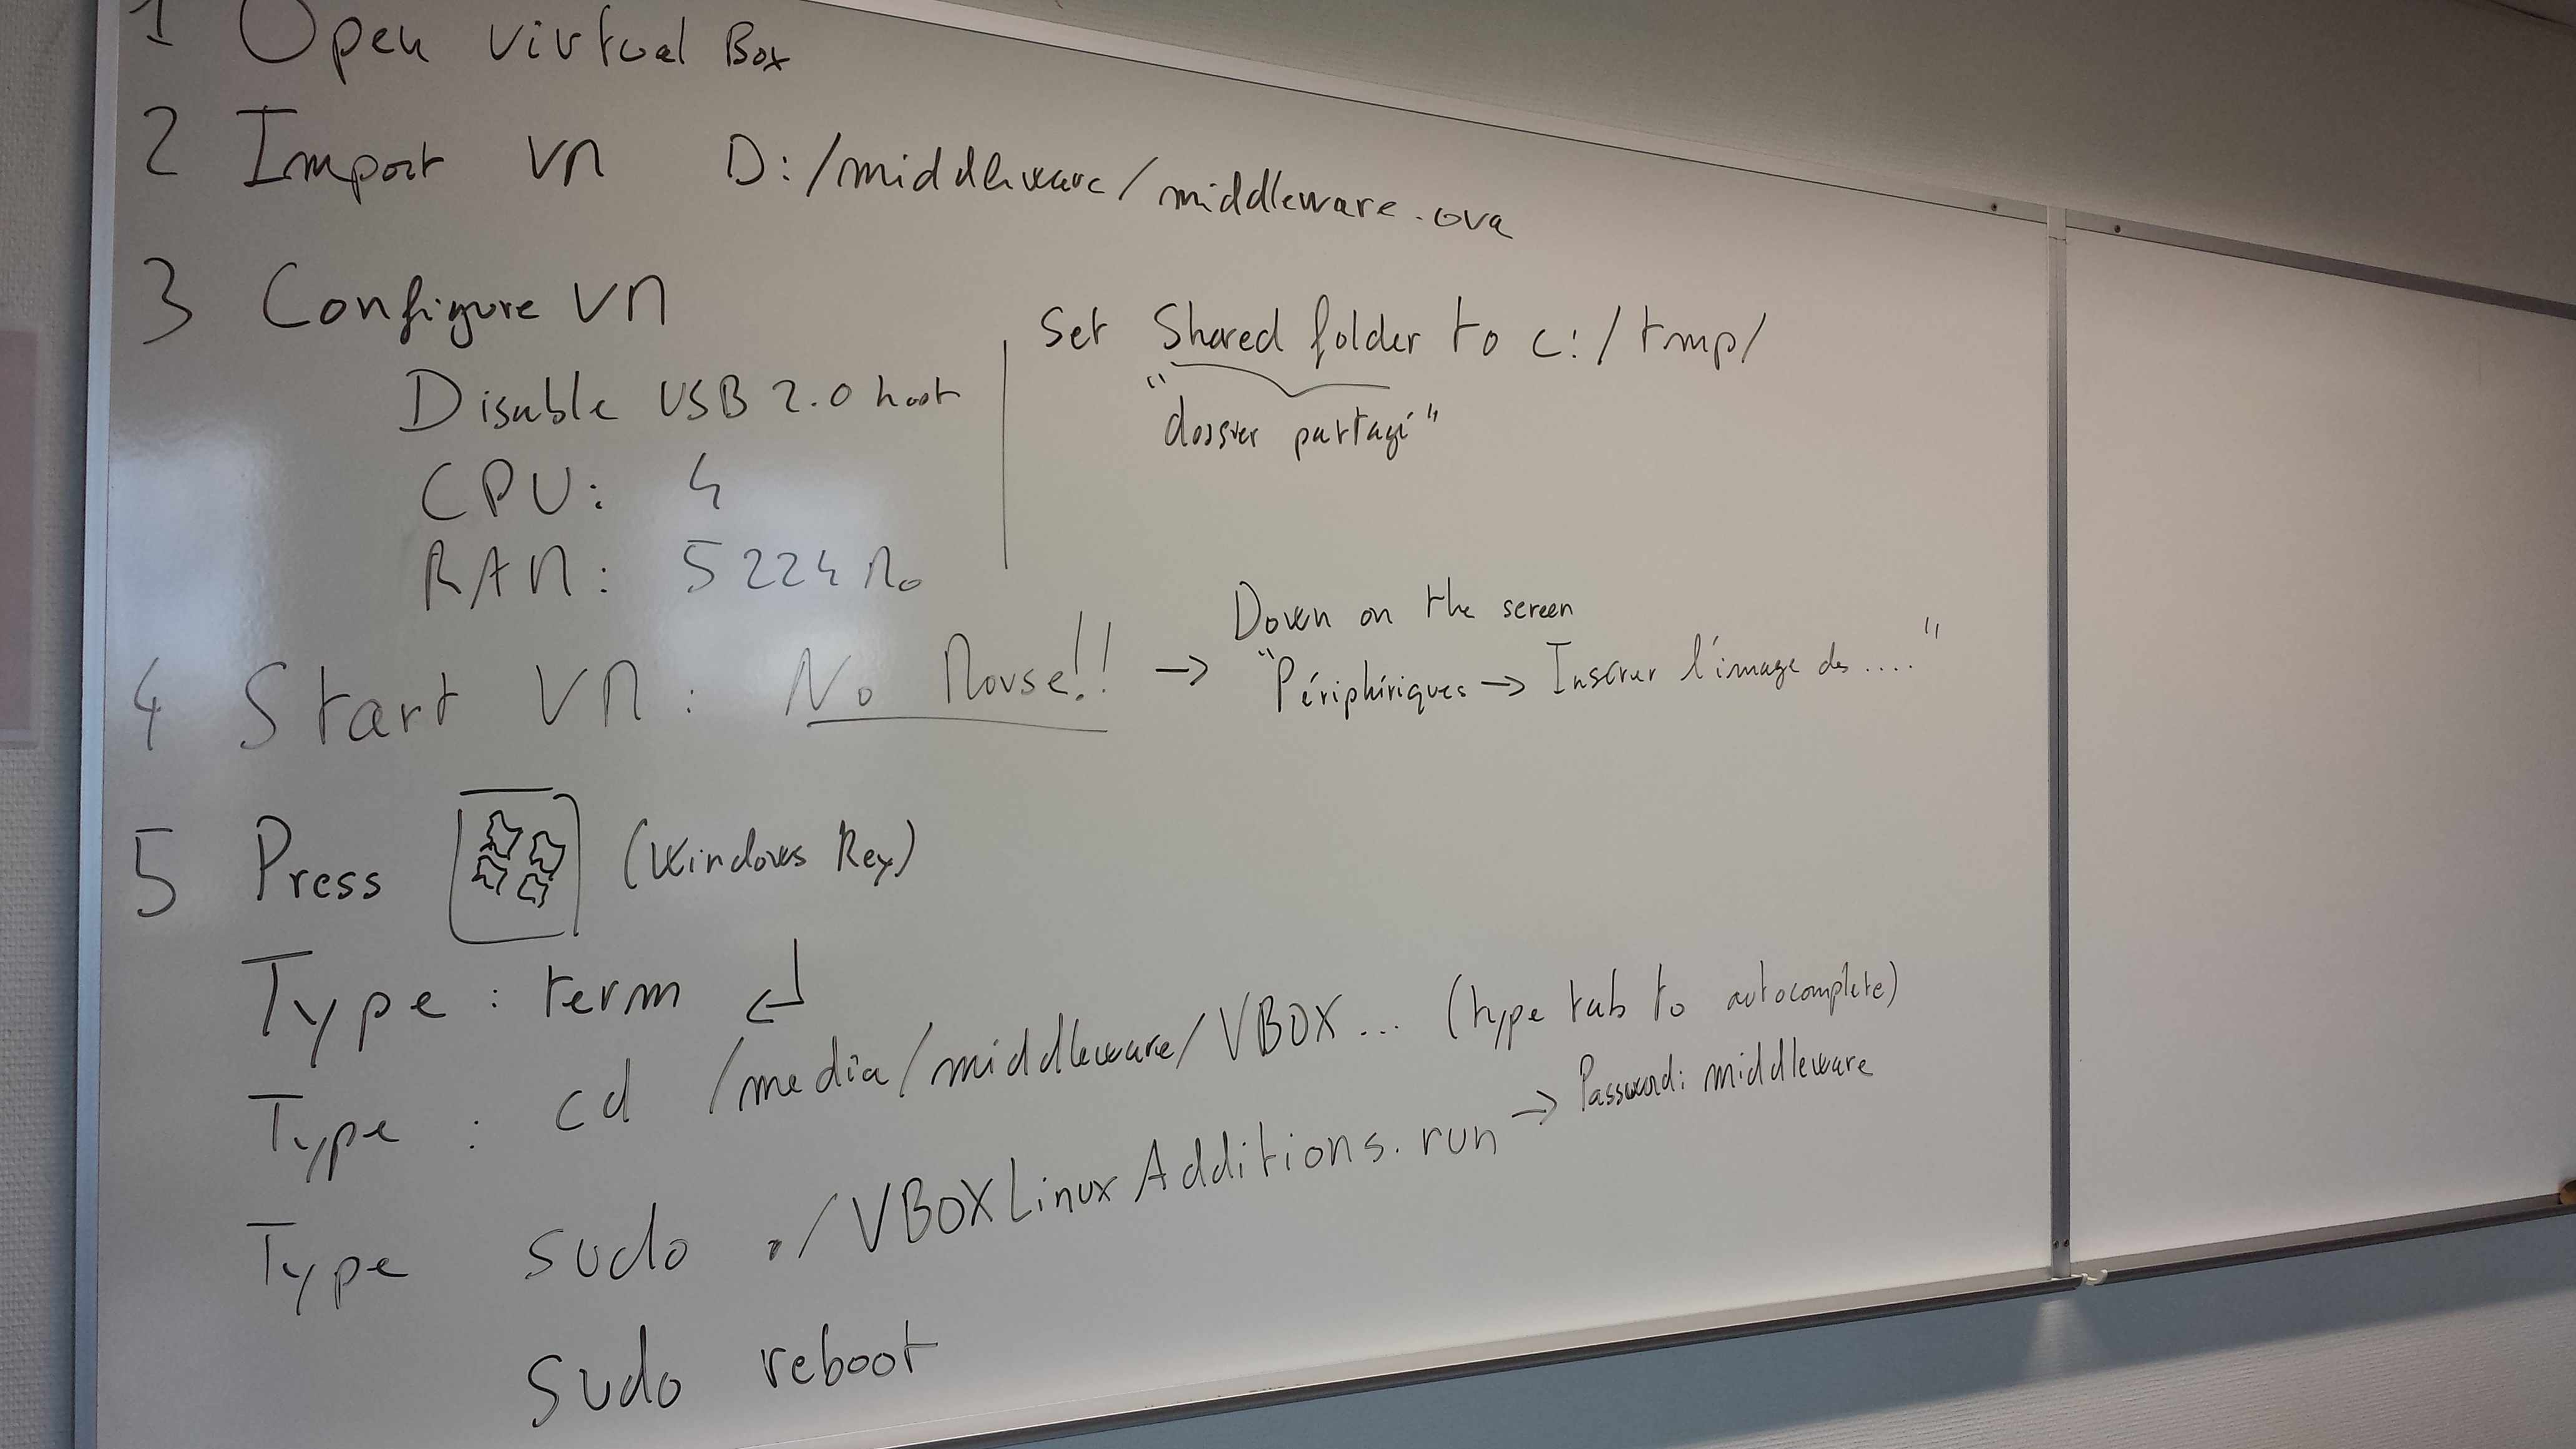 1 Open virtual Box
2 Import VM D:/middleware/middleware.ova
3 Configure VM
Disable USB 2.0 host
CPU: 4
RAM: 5224 Mo
Set Shared folder to c:/tmp/
"dossier partagé"
4 Start VM: No Mouse!! →
Down on the screen
"Périphériques → Insérer l'image des ...."
5 Press (Windows Key)
Type: term ↵
Type: cd /media/middleware/VBOX... (type tab to autocomplete)
Type sudo ./VBOXLinuxAdditions.run → Password: middleware
sudo reboot